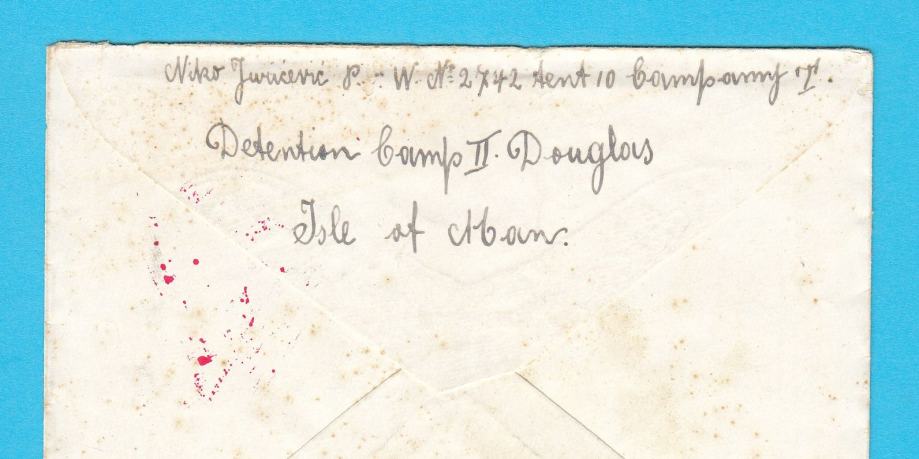 Niko Jurićević P. W. № 2742 tent 10 Company I.
Detention Camp II. Douglas
Isle of Man.